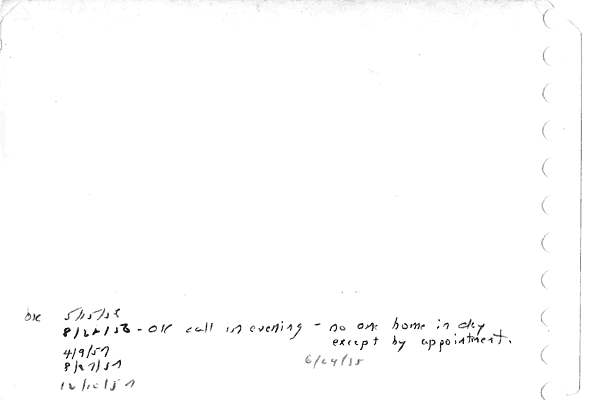 OK 5/15/56
8/22/56 - OK call in evening - no one home in day
except by appointment.
4/9/57
8/27/57
6/24/58
12/10/57